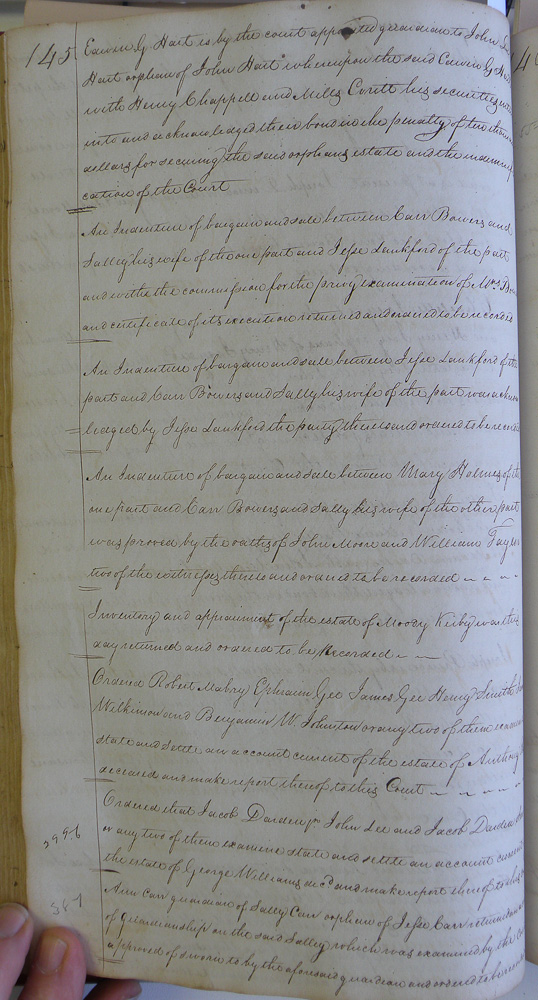 145
Edwin G Hart is by the court appointed guardian to John
Hart orphan of John Hart whereupon the said Edwin G Hart
with Henry Chappell and Mills Coritt his securities
into and acknowledged their bond in the penalty of two thousand
dollars for securing the said orphans estate and the indemnifi
cation of the Court
An Indenture of bargain and sale between Carr Bowers and
Sally his wife of the one part and Jesse Lankford of the part
and with the commission for the privy examination of Mrs
and certificate of its execution returned and ordered to be recorded
An Indenture of bargain and sale between Jesse Lankford of the
part and Carr Bowers and Sally his wife of the part was acknow
ledged by Jesse Lankford the party thereto and ordered to be recorded
An Indenture of bargain and sale between Mary Holmes of the
one part and Carr Bowers and Sally his wife of the other part
was proved by the oaths of John Moore and William Taylor
two of the witnesses thereto and ordered to be recorded
Inventory and appraisment of the estate of Moody Kirby was this
day returned and ordered to be Recorded
Ordered Robert Mabry Ephraim Gee James Gee Henry Smith
Wilkinson and Benjamin W Johnston or any two of them examine
state and settle an account current of the estate of Anthony
deceased and make report thereof to this Court
Ordered that Jacob Darden jr John Lee and Jacob Darden
or any two of them examine state and settle an account current
the estate of George Williams decd and make report thereof to this
Ann Carr guardian of Sally Carr orphan of Jesse Carr returned an
of guardianship on the said Sally which was examined by the
approved of sworn to by the aforesaid guardian and ordered to be recorded